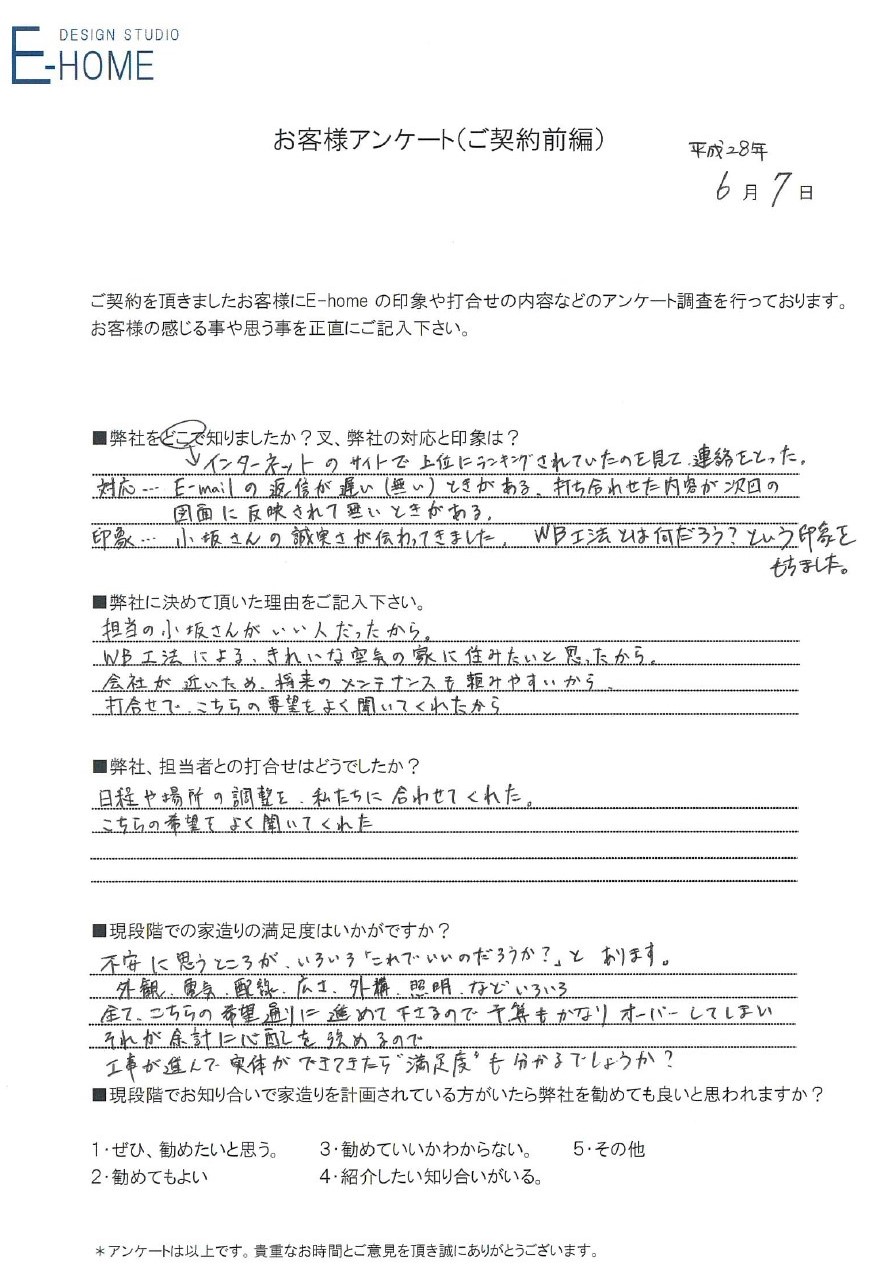 DESIGN STUDIO
E-HOME
お客様アンケート(ご契約前編)
平成28年
6月7日
ご契約を頂きましたお客様にE-home の印象や打合せの内容などのアンケート調査を行っております。
お客様の感じる事や思う事を正直にご記入下さい。
■弊社をどこで知りましたか?叉、弊社の対応と印象は?
インターネットのサイトで上位にランキングされていたのを見て、連絡をとった。
対応… E-mailの返信が遅い(無い)ときがある、打ち合わせた内容が次回の
図面に反映されて無いときがある。
印象… 小坂さんの誠実さが伝わってきました。 WB工法とは何だろう?という印象を
もちました。
■弊社に決めて頂いた理由をご記入下さい。
担当の小坂さんがいい人だったから。
WB工法による、きれいな空気の家に住みたいと思ったから。
会社が近いため、将来のメンテナンスも頼みやすいから、
打合せで、こちらの要望をよく聞いてくれたから
■弊社、担当者との打合せはどうでしたか?
日程や場所の調整を、私たちに合わせてくれた。
こちらの希望をよく聞いてくれた
■現段階での家造りの満足度はいかがですか?
不安に思うところが、いろいろ「これでいいのだろうか?」と あります。
外観、電気、配線、広さ、外構、照明、などいろいろ
全て、こちらの希望通りに進めて下さるので予算もかなりオーバーしてしまい
それが余計に心配を強めるので
工事が進んで実体ができてきたら"満足度"も分かるでしょうか?
■現段階でお知り合いで家造りを計画されている方がいたら弊社を勧めても良いと思われますか?
1・ぜひ、勧めたいと思う。 3・勧めていいかわからない。 5・その他
2・勧めてもよい 4・紹介したい知り合いがいる。
*アンケートは以上です。貴重なお時間とご意見を頂き誠にありがとうございます。